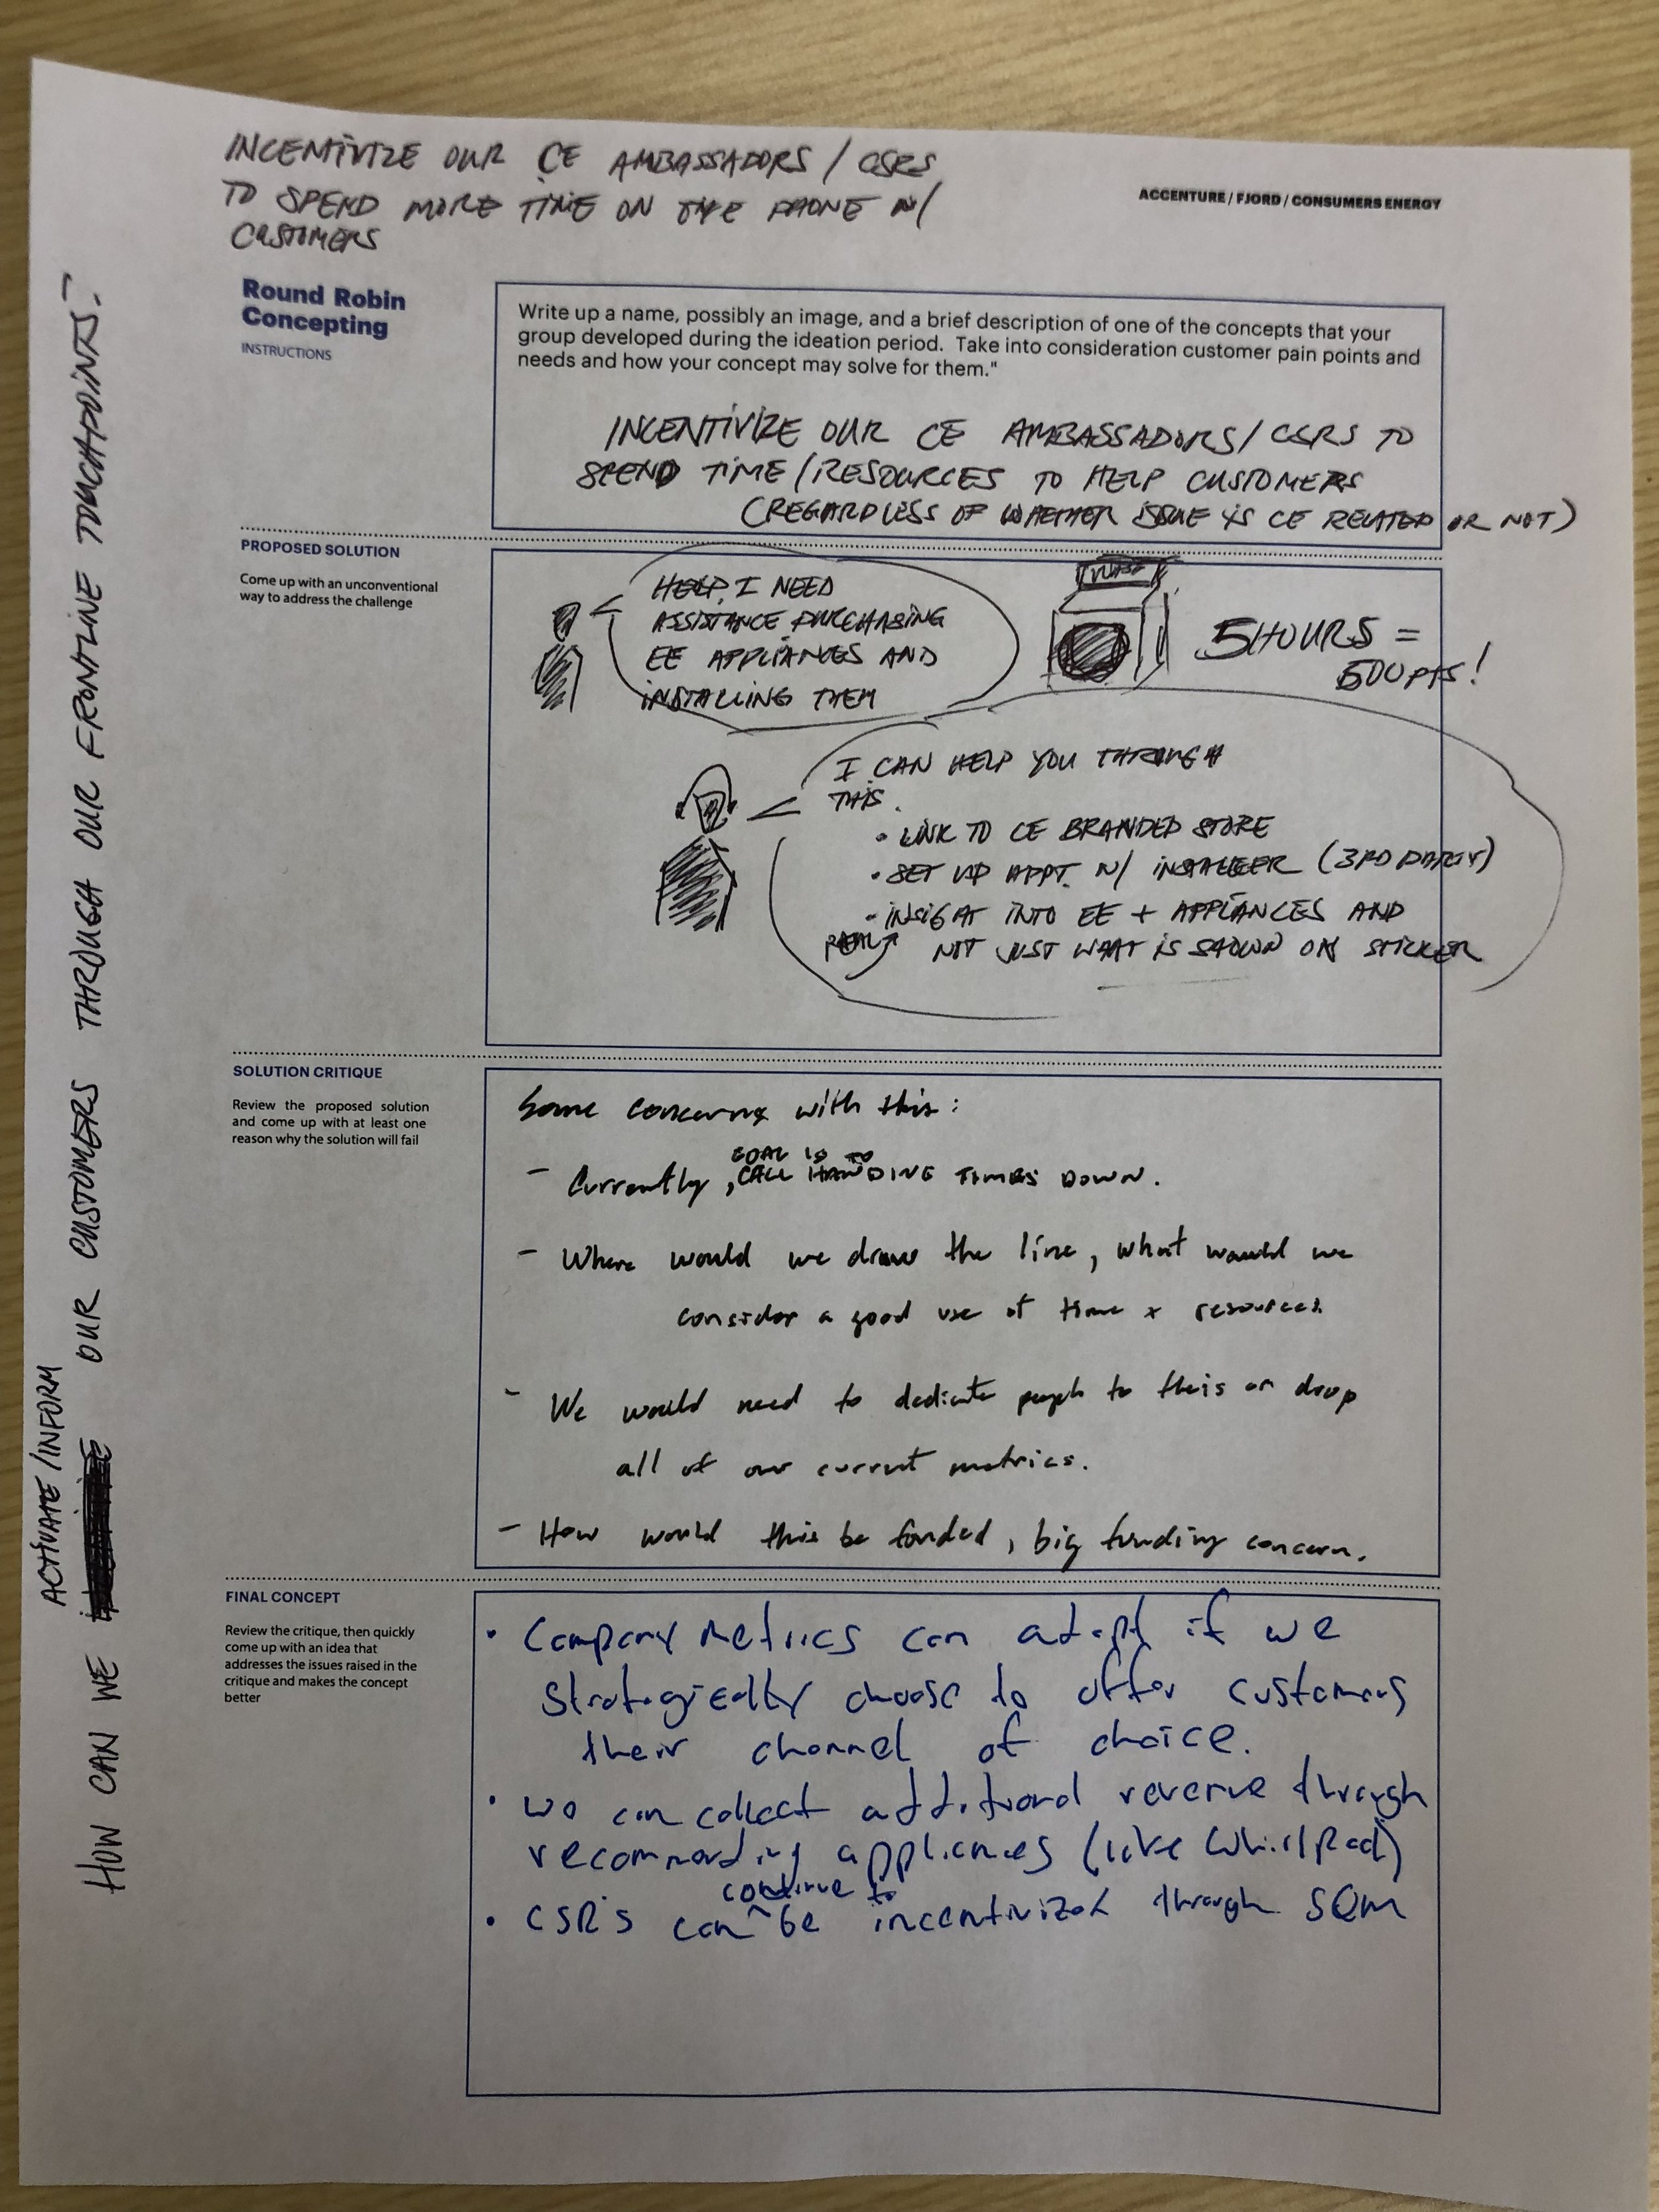 INCENTIVIZE OUR CE AMBASSADORS / CSRS
TO SPEND MORE TIME ON THE PHONE W/
CUSTOMERS
ACCENTURE / FJORD / CONSUMERS ENERGY
HOW CAN WE OUR CUSTOMERS THROUGH OUR FRONTLINE TOUCHPOINTS?
ACTIVATE / INFORM
Round Robin
Concepting
INSTRUCTIONS
Write up a name, possibly an image, and a brief description of one of the concepts that your
group developed during the ideation period. Take into consideration customer pain points and
needs and how your concept may solve for them."
INCENTIVIZE OUR CE AMBASSADORS / CSRS TO
SPEND TIME / RESOURCES TO HELP CUSTOMERS
(REGARDLESS OF WHETHER ISSUE IS CE RELATED OR NOT)
PROPOSED SOLUTION
Come up with an unconventional
way to address the challenge
HELP, I NEED
ASSISTANCE PURCHASING
EE APPLIANCES AND
INSTALLING THEM
5 HOURS =
500 PTS!
I CAN HELP YOU THROUGH
THIS.
• LINK TO CE BRANDED STORE
• SET UP APPT. W/ INSTALLER (3RD PARTY)
• INSIGHT INTO EE + APPLIANCES AND
REAL NOT JUST WHAT IS SHOWN ON STICKER
SOLUTION CRITIQUE
Review the proposed solution
and come up with at least one
reason why the solution will fail
Some concerns with this:
GOAL IS TO
- Currently, CALL HANDING TIMES DOWN.
- Where would we draw the line, what would we
consider a good use of time + resources.
- We would need to dedicate people to this or drop
all of our current metrics.
- How would this be funded, big funding concern.
FINAL CONCEPT
Review the critique, then quickly
come up with an idea that
addresses the issues raised in the
critique and makes the concept
better
• Company metrics can adapt if we
strategically choose to offer customers
their channel of choice.
• We can collect additional revenue through
recommending appliances (like Whirlpool)
continue to
• CSR's can ^ be incentivized through SQM